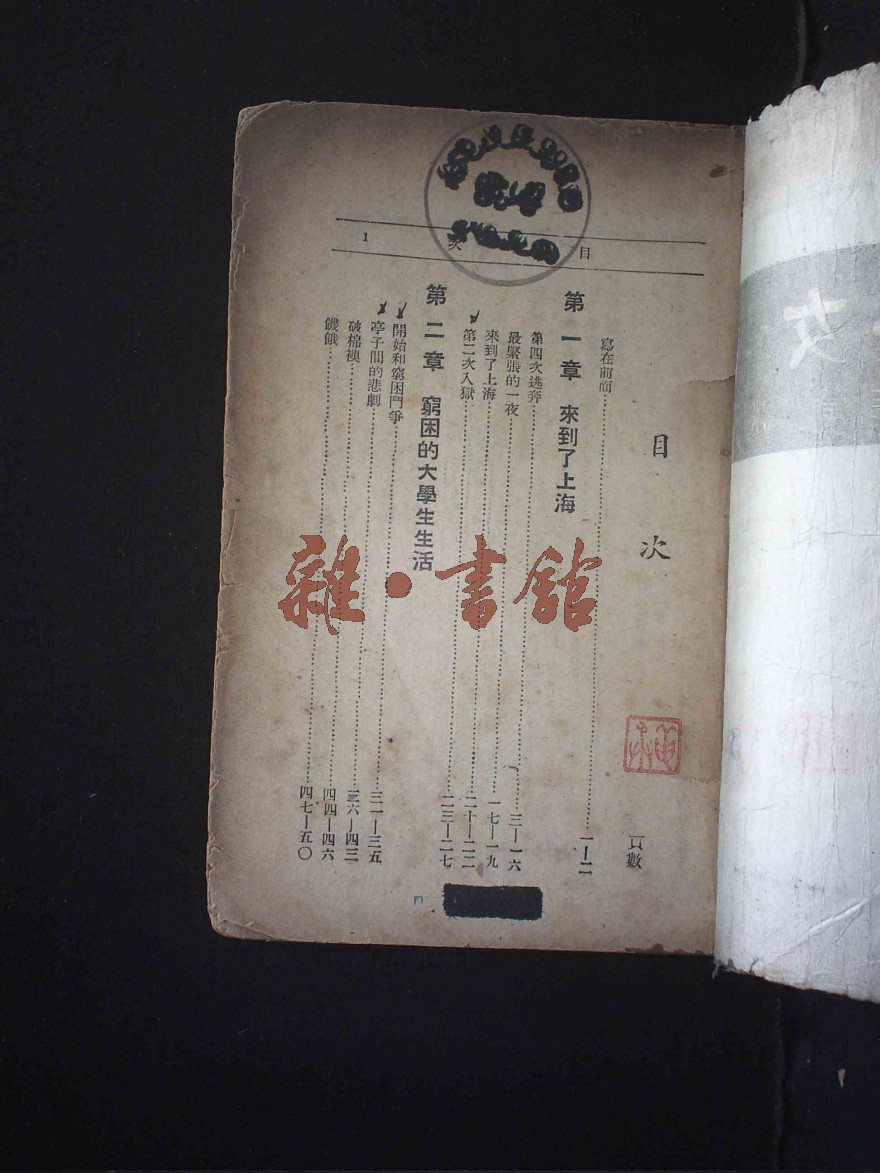 目次
頁數
寫在前面……一—二
第一章 來到了上海
第四次逃奔……三—一六
最緊張的一夜……一七—一九
來到了上海……二十—二二
第二次入獄……二三—二七
第二章 窮困的大學生生活
開始和窮困鬥爭……三一—三五
亭子間的悲劇……三六—四三
破棉襖……四四—四六
饑餓……四七—五〇
目次 1
雜·書館
次